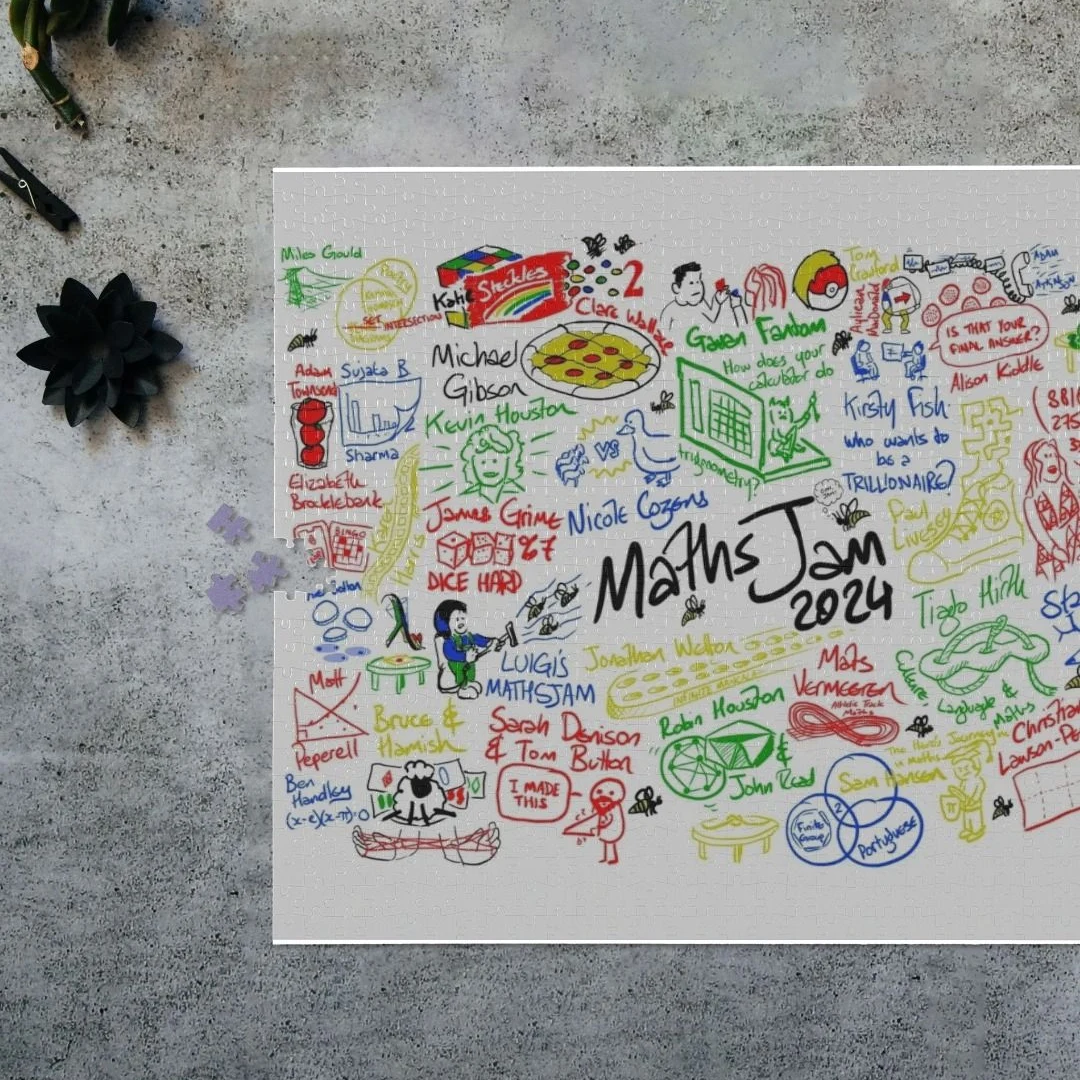 Miles Gould
SET
INTERSECTION
Katie
Steckles
2
Clare Wallace
Gaven Fantom
Tom
Crawford
Ayliean
MacDonald
ADAM
ATKINSON
IS THAT YOUR
FINAL ANSWER?
Alison Kiddle
Michael
Gibson
How does your
calculator do
trigonometry?
Adam
Townsend
Sujata B
Sharma
Kevin Houston
VS
Nicole Cozens
Kirsty Fish
who wants to
be a
TRILLIONAIRE?
(8816
275
Elizabeth
Brocklebank
BINGO
James Grime
%7
DICE HARD
Paul
Livesey
Maths Jam
2024
LUIGI'S
MATHSJAM
Jonathan Welton
Mats
VERMEEREN
Athletic Track
Maths
Tiago Hirth
Culture
Language &
Maths
Matt
Peperell
Bruce &
Hamish
Sarah Denison
& Tom Button
I MADE
THIS
Robin Houston
&
John Read
The Hero's Journey in
Maths
Sam Hansen
π
2
Finite
Group
Portuguese
Christian
Lawson-Pe
Ben
Handley
(x-e)(x-π)=0